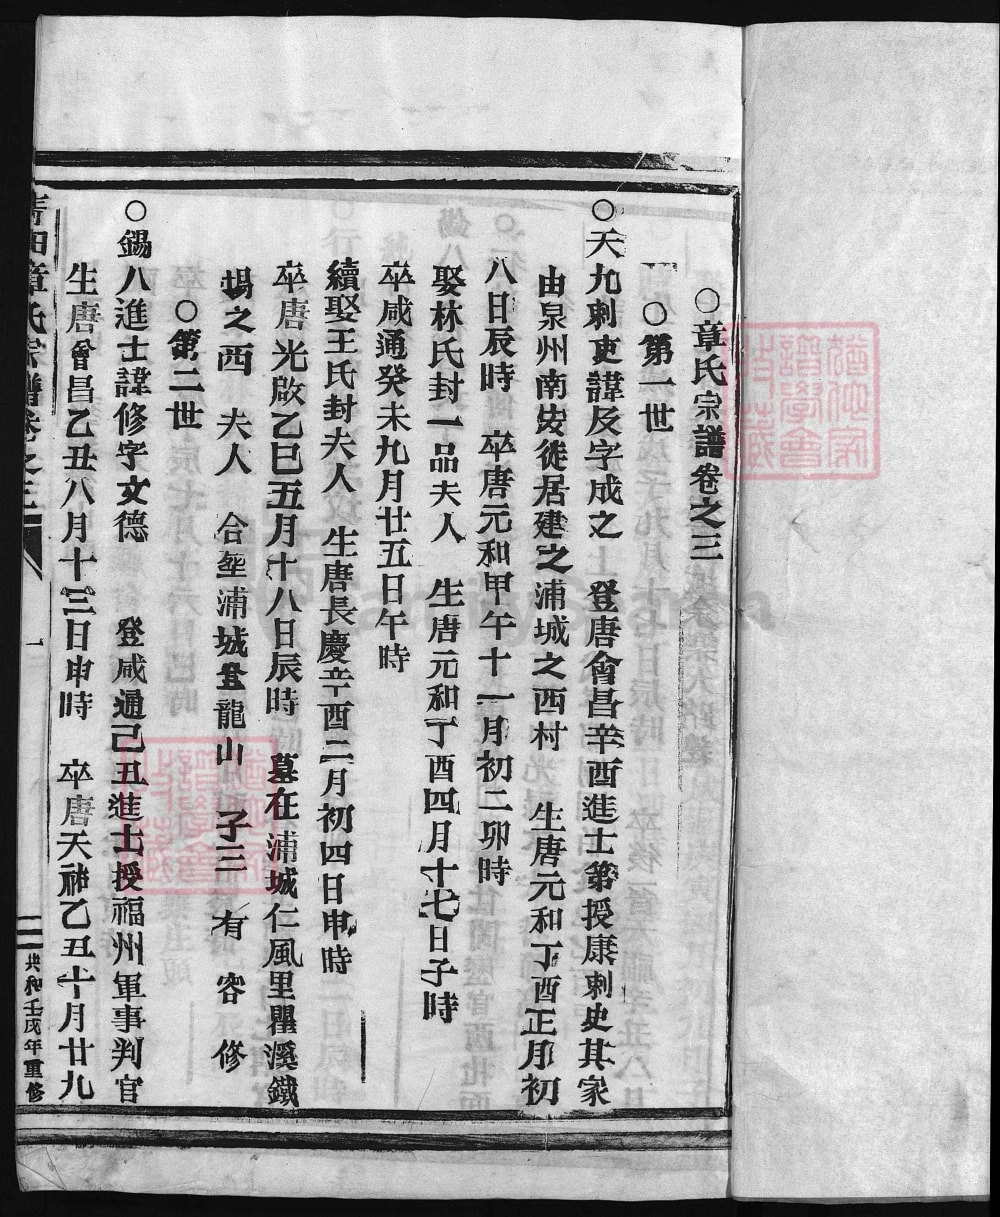 ○章氏宗譜卷之三
○第一世
○天九刺吏諱及字成之　登唐會昌辛酉進士第授康刺史其家
由泉州南安徙居建之浦城之西村　生唐元和丁酉正月初
八日辰時　卒唐元和甲午十一月初二卯時
娶林氏封一品夫人　生唐元和丁酉四月十七日子時
卒咸通癸未九月廿五日午時
續娶王氏封夫人　生唐長慶辛酉二月初四日申時
卒唐光啟乙巳五月十八日辰時　墓在浦城仁風里瞿溪鐵
場之西　夫人　合塟浦城登龍山　子三　有　容　修
○第二世
○錫八進士諱修字文德　登咸通己丑進士授福州軍事判官
生唐會昌乙丑八月十三日申時　卒唐天祐乙丑十月廿九
田章氏宗譜卷之三
一
共和壬戌年重修